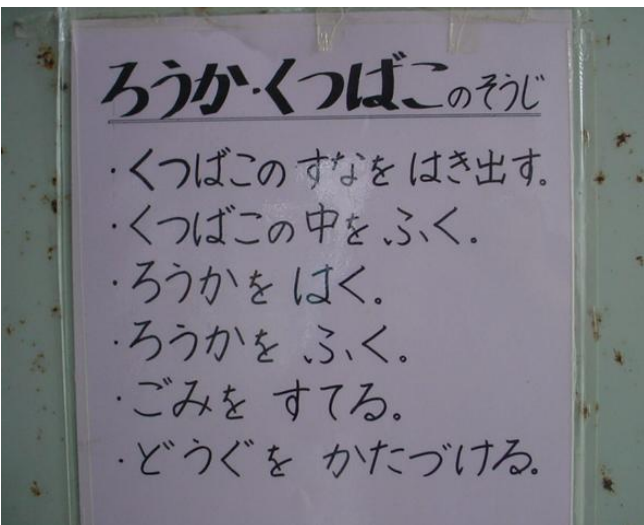 ろうか・くつばこのそうじ
・くつばこの すなを はき出す。
・くつばこの中を ふく。
・ろうかを はく。
・ろうかを ふく。
・ごみを すてる。
・どうぐを かたづける。